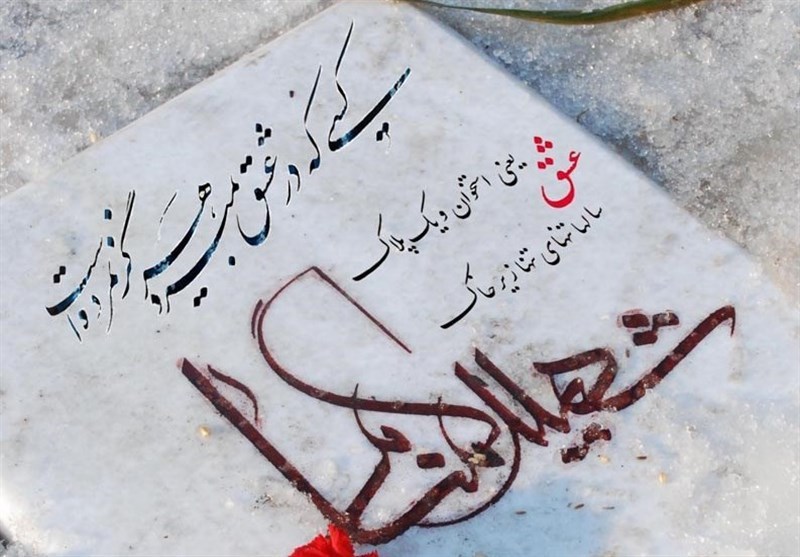 کسی که در عشق بمیرد هرگز نمرده است
عشق یعنی استخوان و یک پلاک
سالها تنهای تنها زیر خاک